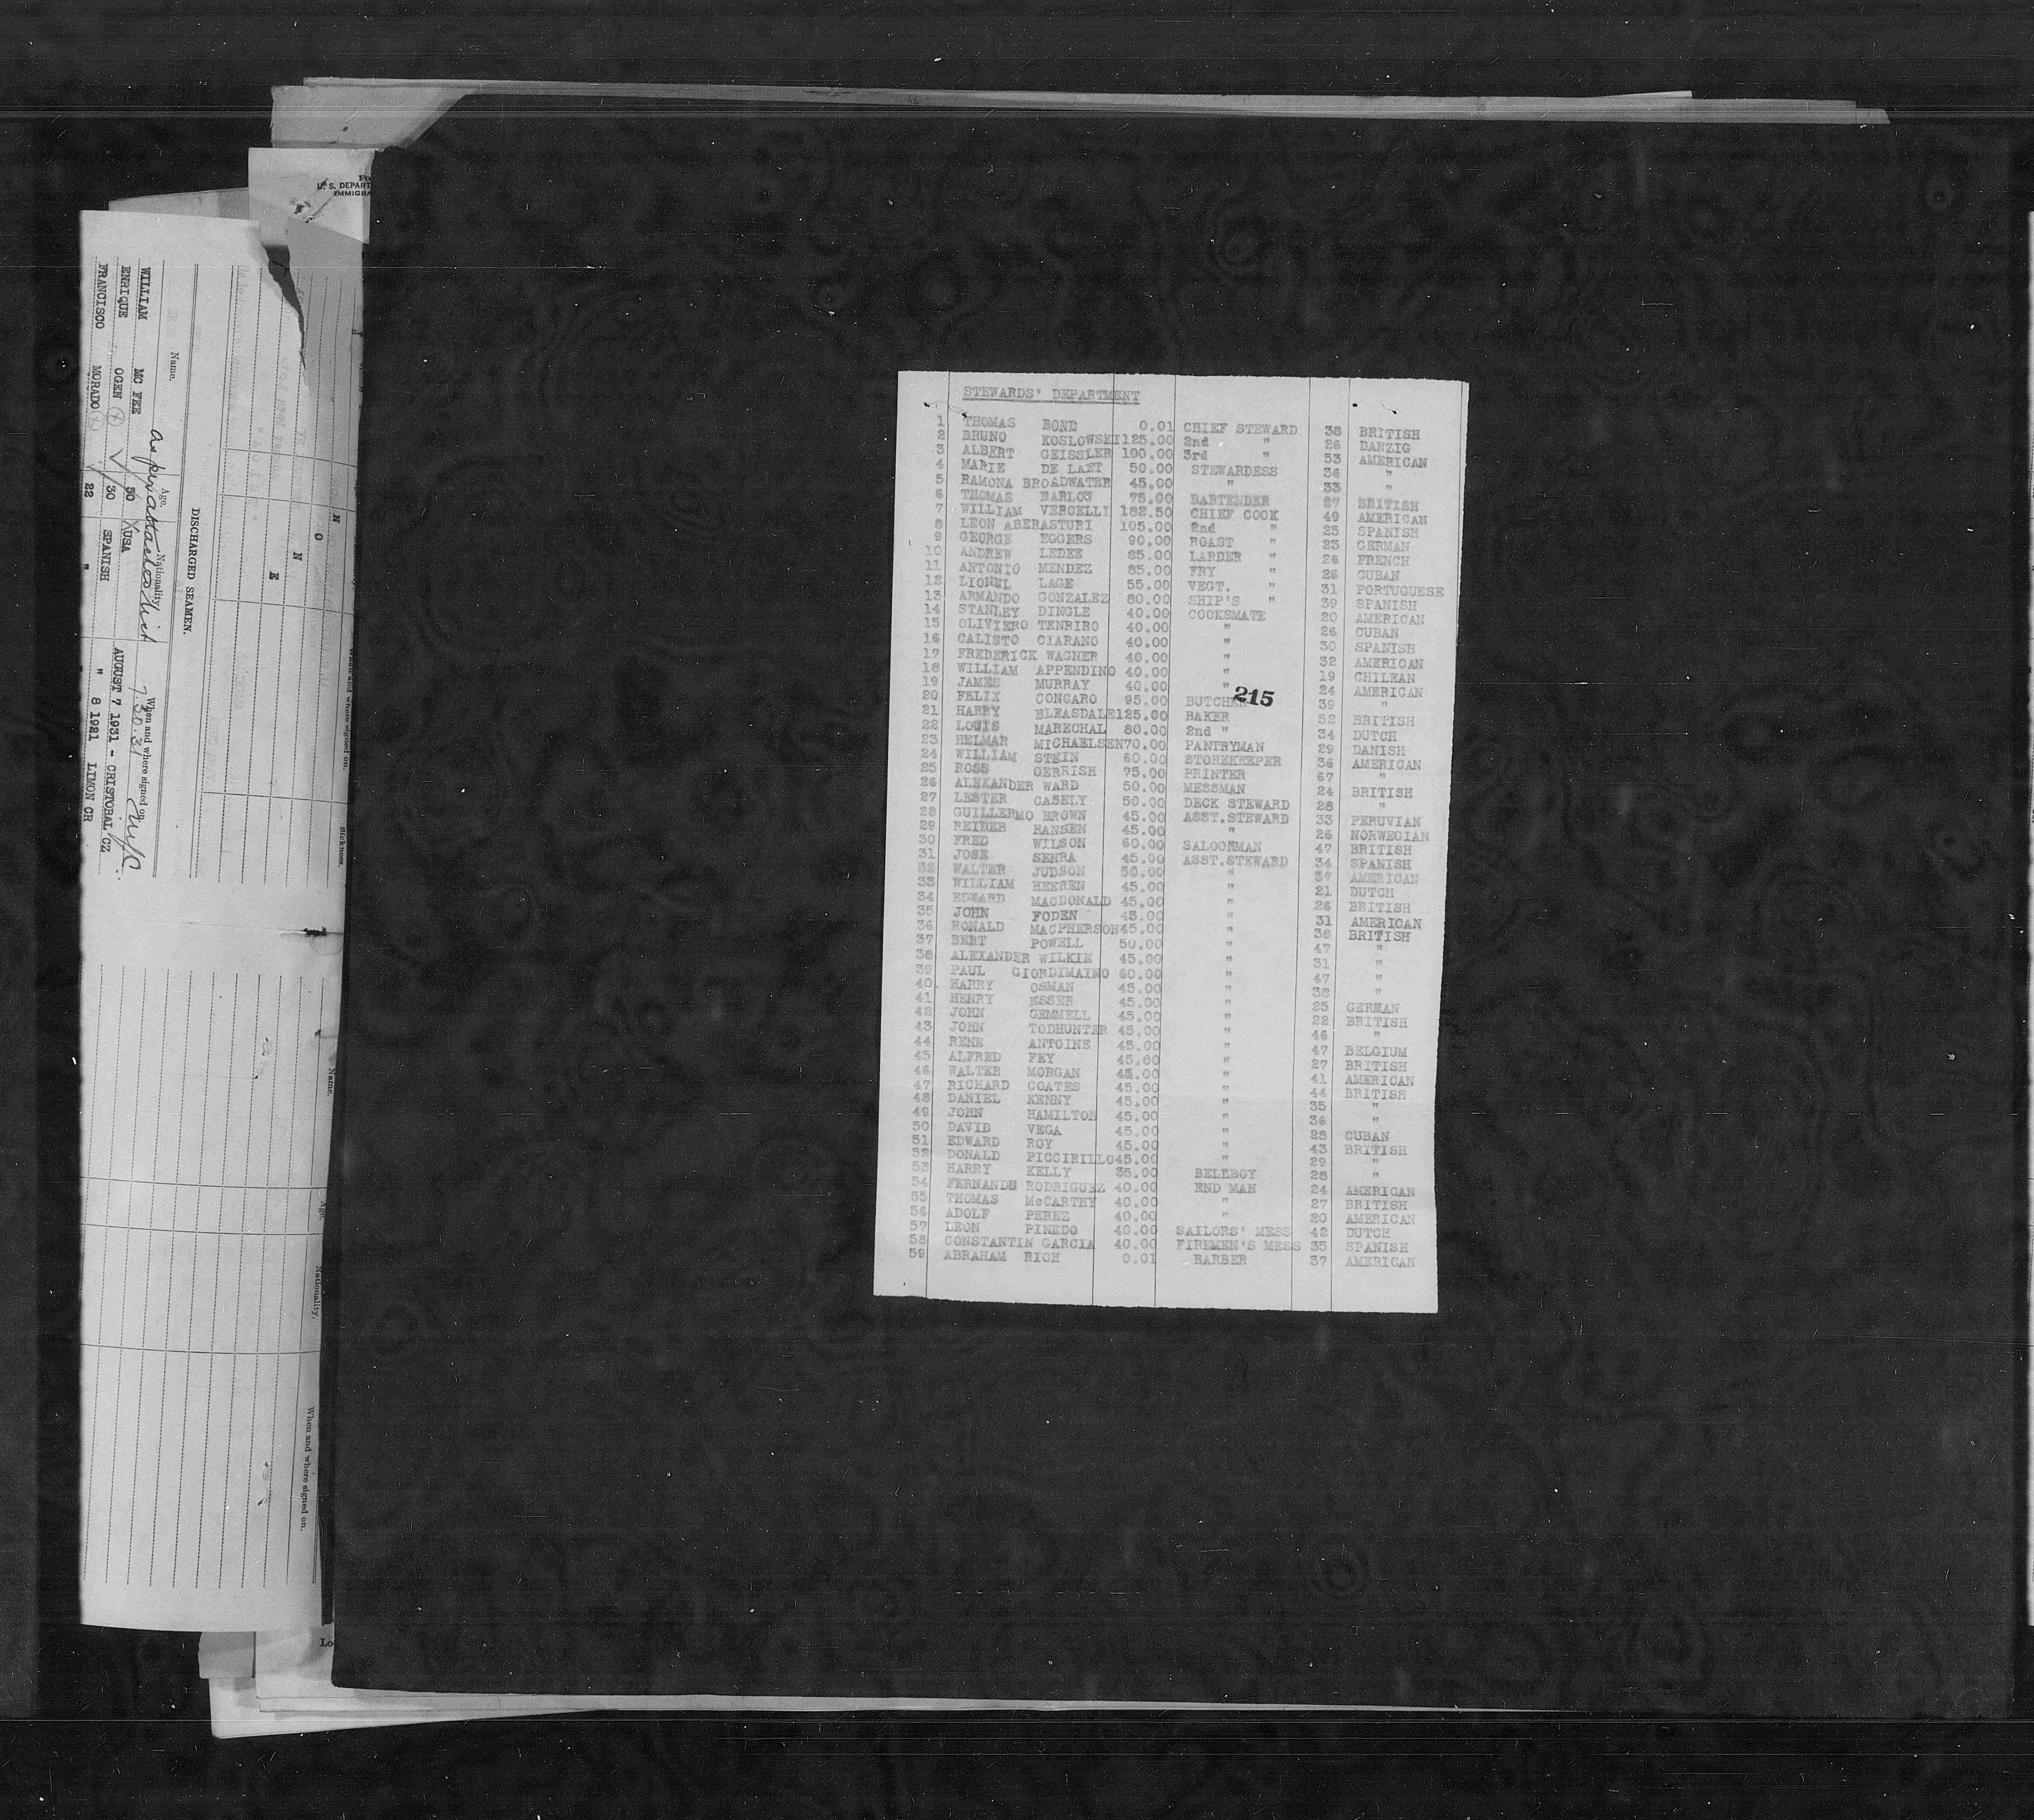 STEWARDS' DEPARTMENT
1 THOMAS BOND 0.01 CHIEF STEWARD 38 BRITISH
2 BRUNO KOSLOWSKI 125.00 2nd " 26 DANZIG
3 ALBERT GEISSLER 100.00 3rd " 53 AMERICAN
4 MARIE DE LAZT 50.00 STEWARDESS 36 "
5 RAMONA BROADWATER 45.00 " 33 "
6 THOMAS BARLOW 75.00 BARTENDER 27 BRITISH
7 WILLIAM VERCELLI 182.50 CHIEF COOK 49 AMERICAN
8 LEON ABERASTURI 105.00 2nd " 25 SPANISH
9 GEORGE EGGERS 90.00 ROAST " 23 GERMAN
10 ANDREW LEDEE 85.00 LARDER " 26 FRENCH
11 ANTONIO MENDEZ 85.00 FRY " 26 CUBAN
12 LIONEL LAGE 55.00 VEGT. " 31 PORTUGUESE
13 ARMANDO GONZALEZ 80.00 SHIP'S " 39 SPANISH
14 STANLEY DINGLE 40.00 COOKSMATE 20 AMERICAN
15 OLIVIERO TENRIRO 40.00 " 26 CUBAN
16 CALISTO CIARANO 40.00 " 30 SPANISH
17 FREDERICK WAGNER 40.00 " 32 AMERICAN
18 WILLIAM APPENDINO 40.00 " 19 CHILEAN
19 JAMES MURRAY 40.00 " 24 AMERICAN
215
20 FELIX CONGARO 95.00 BUTCHER 39 "
21 HARRY BLEASDALE 125.00 BAKER 52 BRITISH
22 LOUIS MARECHAL 80.00 2nd " 34 DUTCH
23 HELMAR MICHAELSEN 70.00 PANTRYMAN 29 DANISH
24 WILLIAM STEIN 60.00 STOREKEEPER 36 AMERICAN
25 ROSS GERRISH 75.00 PRINTER 67 "
26 ALEXANDER WARD 50.00 MESSMAN 24 BRITISH
27 LESTER CASELY 50.00 DECK STEWARD 28 "
28 GUILLERMO BROWN 45.00 ASST.STEWARD 33 PERUVIAN
29 REIDER HANSEN 45.00 " 26 NORWEGIAN
30 FRED WILSON 60.00 SALOONMAN 47 BRITISH
31 JOSE SENRA 45.00 ASST.STEWARD 34 SPANISH
32 WALTER JUDSON 50.00 " 57 AMERICAN
33 WILLIAM HEEREN 45.00 " 21 DUTCH
34 EDWARD MACDONALD 45.00 " 26 BRITISH
35 JOHN FODEN 45.00 " 31 AMERICAN
36 RONALD MACPHERSON 45.00 " 38 BRITISH
37 BERT POWELL 50.00 " 47 "
38 ALEXANDER WILKIE 45.00 " 31 "
39 PAUL GIORDIMAINO 60.00 " 47 "
40 HARRY OSMAN 45.00 " 38 "
41 HENRY ESSER 45.00 " 25 GERMAN
42 JOHN GEMMELL 45.00 " 22 BRITISH
43 JOHN TODHUNTER 45.00 " 46 "
44 RENE ANTOINE 45.00 " 47 BELGIUM
45 ALFRED FEY 45.00 " 27 BRITISH
46 WALTER MORGAN 45.00 " 41 AMERICAN
47 RICHARD COATES 45.00 " 44 BRITISH
48 DANIEL KENNY 45.00 " 35 "
49 JOHN HAMILTON 45.00 " 36 "
50 DAVID VEGA 45.00 " 28 CUBAN
51 EDWARD ROY 45.00 " 43 BRITISH
52 DONALD PICCIRILLO 45.00 " 29 "
53 HARRY KELLY 35.00 BELLBOY 28 "
54 FERNANDU RODRIGUEZ 40.00 END MAN 24 AMERICAN
55 THOMAS McCARTHY 40.00 " 27 BRITISH
56 ADOLF PEREZ 40.00 " 20 AMERICAN
57 LEON PINEDO 40.00 SAILORS' MESS 42 DUTCH
58 CONSTANTIN GARCIA 40.00 FIREMEN'S MESS 35 SPANISH
59 ABRAHAM RICH 0.01 BARBER 37 AMERICAN
U. S. DEPART
IMMIGRA
Name. Age. Nationality. When and where signed on. Sickness.
N O N E
DISCHARGED SEAMEN.
Name. Age. Nationality. When and where signed on.
as per attached list 7.30.31 NYC.
WILLIAM MC FEE 50 USA
ENRIQUE OGEN 30 SPANISH AUGUST 7 1931 - CRISTOBAL CZ
FRANCISCO MORADO 22 " " 8 1921 LIMON CR
Lo